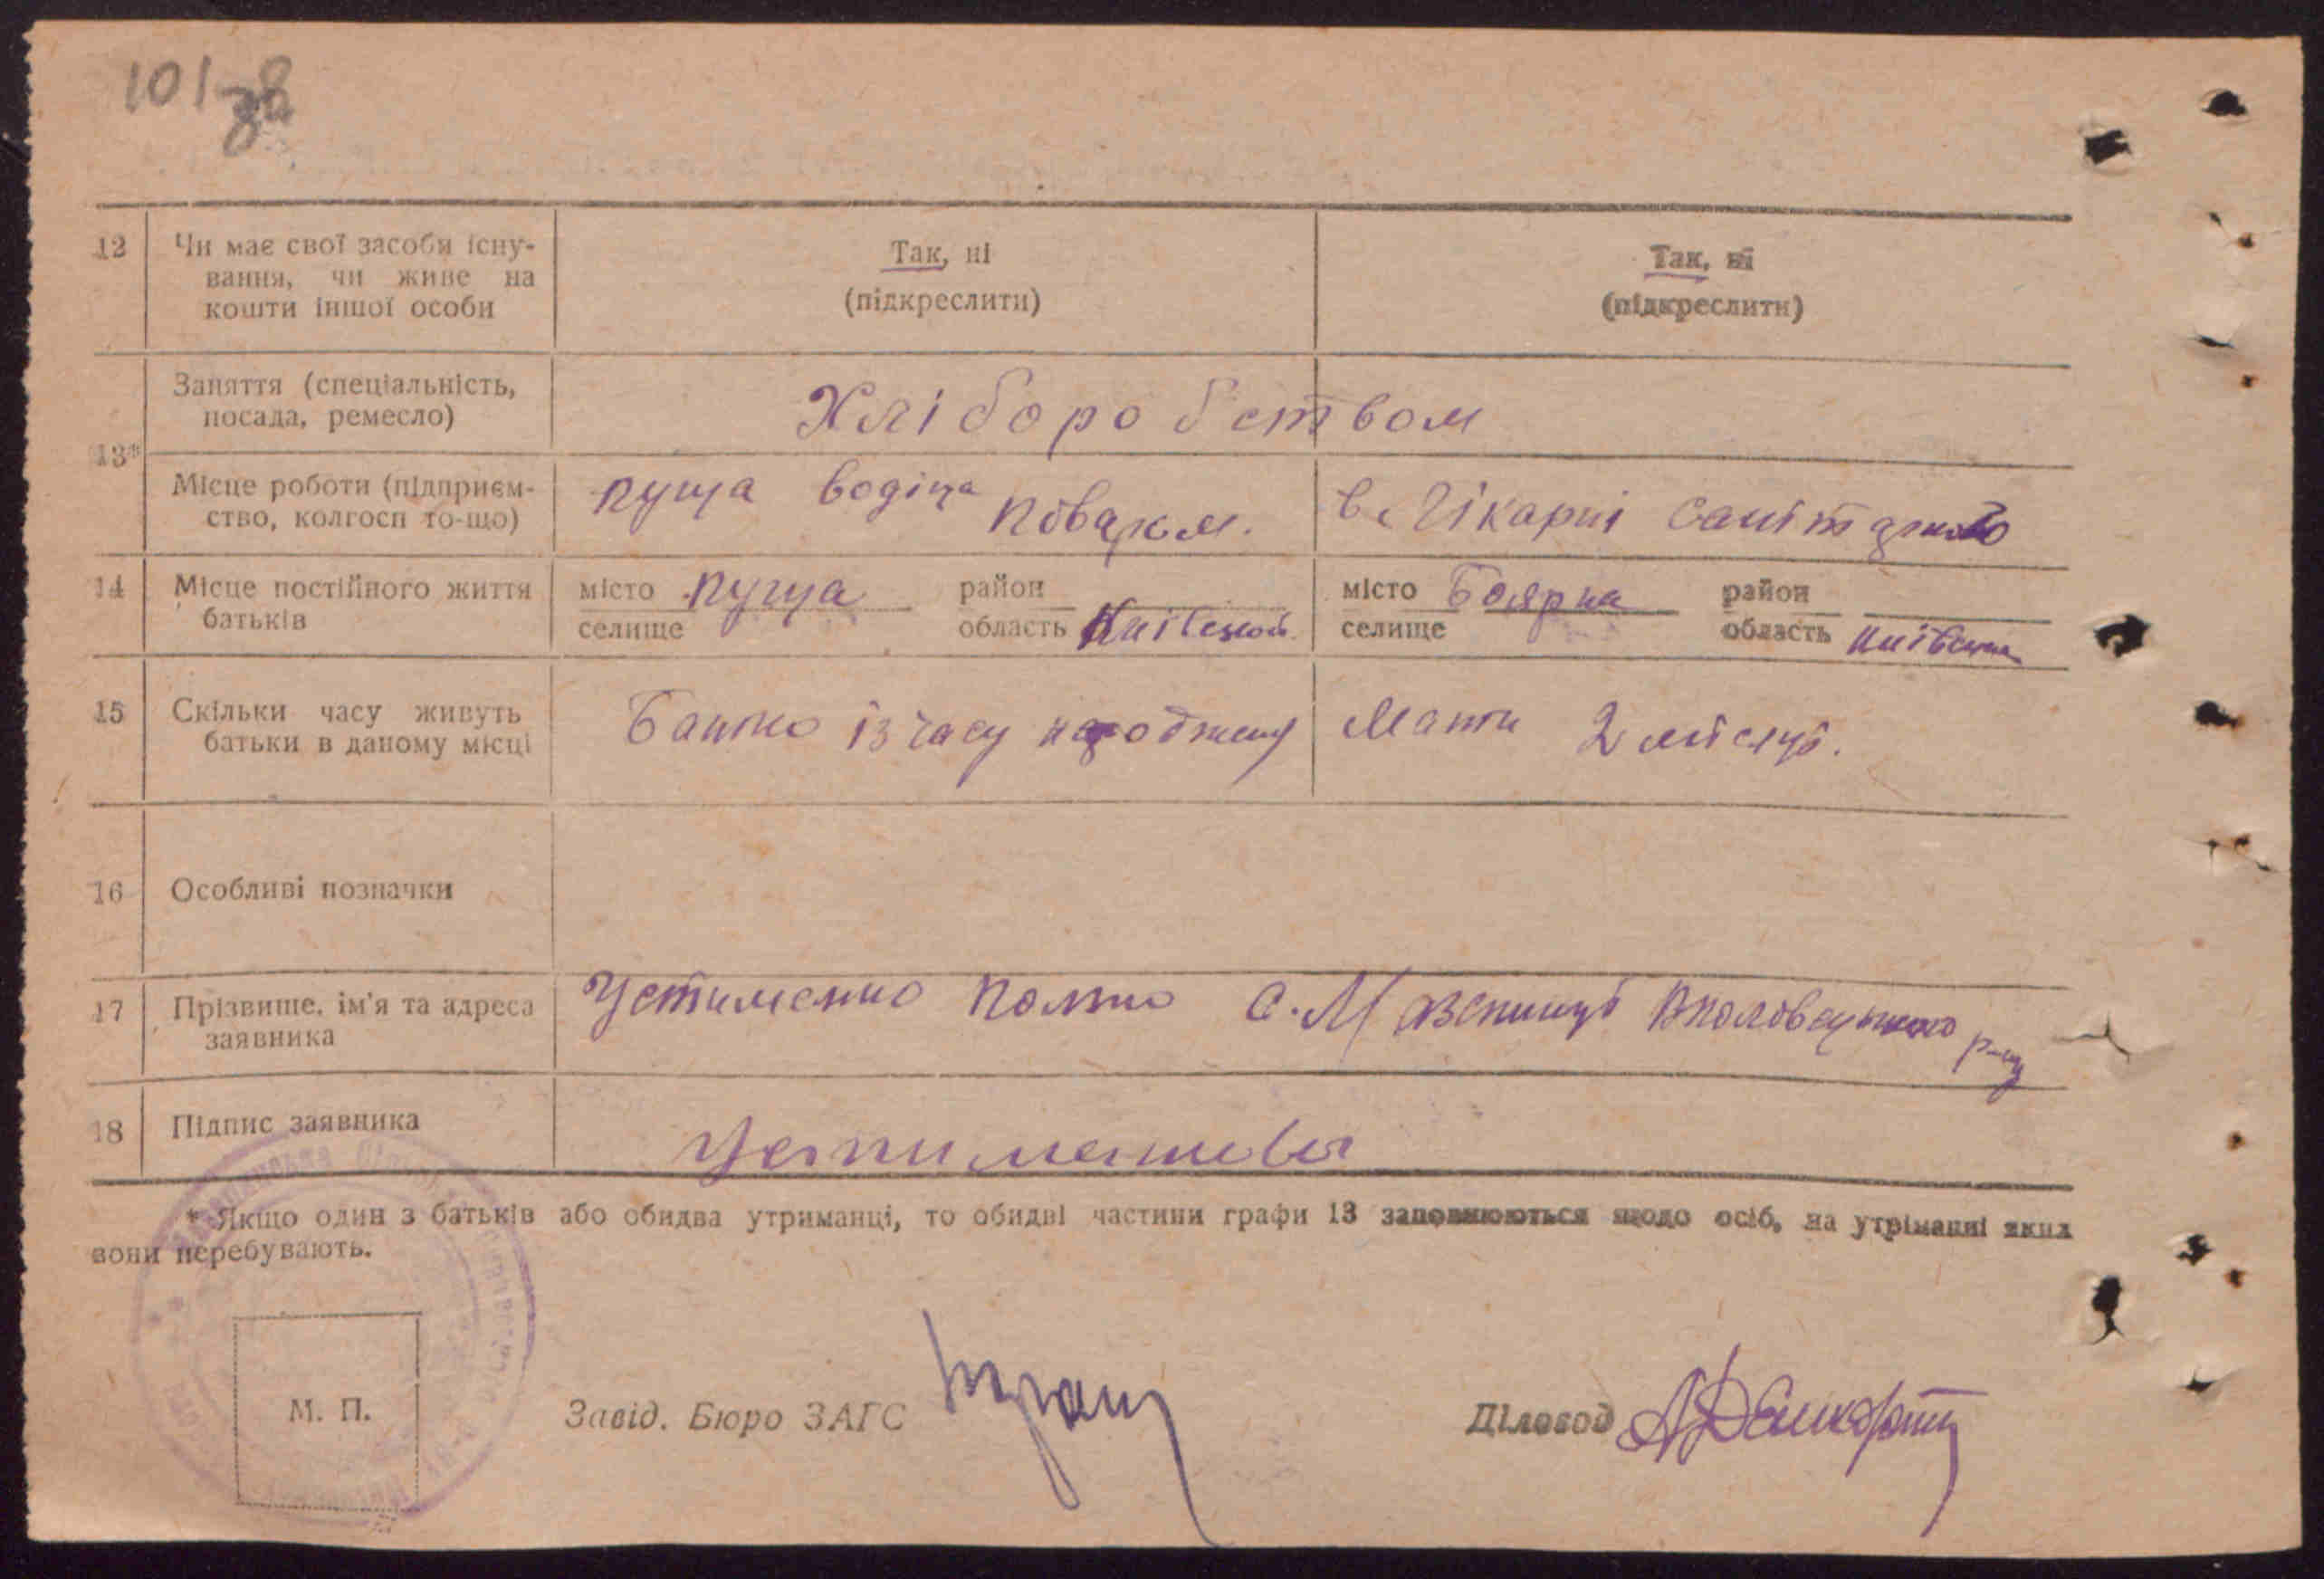 101
12 Чи має свої засоби існу-
вання, чи живе на
кошти іншої особи
Так, ні
(підкреслити)
Так, ні
(підкреслити)
13*
Заняття (спеціальність,
посада, ремесло)
Хліборобством
Місце роботи (підприєм-
ство, колгосп то-що)
пуща водіца
в Лікарні
14 Місце постійного життя
батьків
місто пуща район
селище область
місто Боярка район
селище область
15 Скільки часу живуть
батьки в даному місці
Батько із часу
Мати 2 місяця.
16 Особливі позначки
17 Прізвище, ім'я та адреса
заявника
Устименко с. Мазепинці
18 Підпис заявника
* Якщо один з батьків або обидва утриманці, то обидві частини графи 13 заповнюються щодо осіб, на утріманні яких
вони перебувають.
М. П.
Завід. Бюро ЗАГС
Діловод